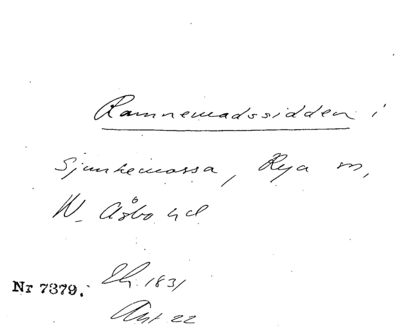 Ramnemadssidden i
Sjunkemossa, Rya sn,
N. Åsbo hd
Eh. 1831
Nr 7379.
Ant 22